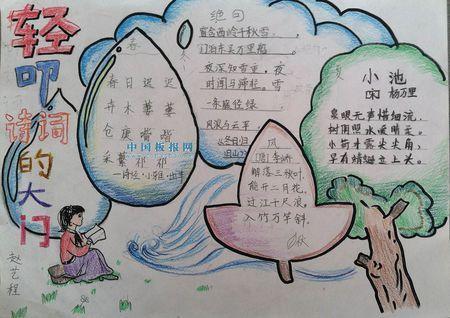 轻叩
诗词
的大门
赵艺程
春
春日迟迟
卉木萋萋
仓庚喈喈
采蘩祁祁
—诗经·小雅·出车
中国板报网
冬
绝句
窗含西岭千秋雪,
门泊东吴万里船。
夜深知雪重,
秋
风
[唐]李峤
解落三秋叶,
能开二月花。
过江千尺浪,
入竹万竿斜。
夏
小池
宋 杨万里
泉眼无声惜细流,
树阴照水爱晴柔。
小荷才露尖尖角,
早有蜻蜓立上头。